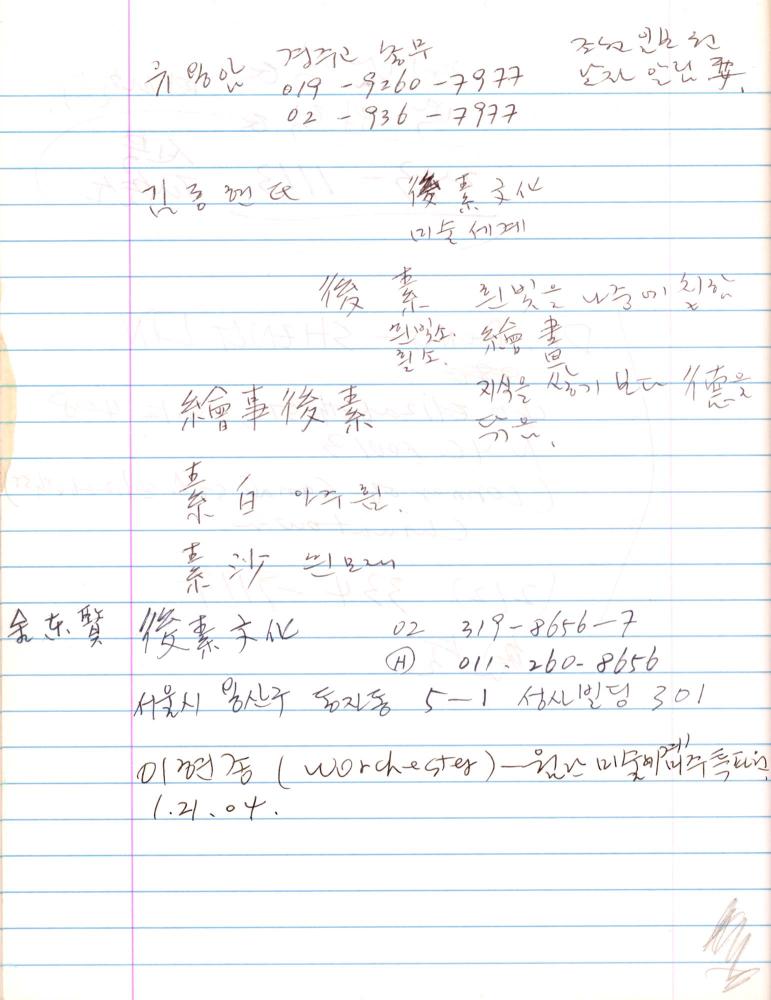 경주고 동무 조선일보 전
류영암 019-9260-7977 날자 알림 要.
02-936-7977
김동현 氏 後素文化
미술세계
後素 흰빛을 나중에 칠함
흰빛소. 繪畵
흴소.
지식을 쌓기 보다 德을
繪事後素 닦음.
素白 아주 흼.
素沙 흰모래
金東賢 後素文化 02 319-8656-7
(H) 011. 260-8656
서울시 용산구 동자동 5-1 성사빌딩 301
이현종 (Worchester) — 월간 미술 미주특파원
1.21.04.